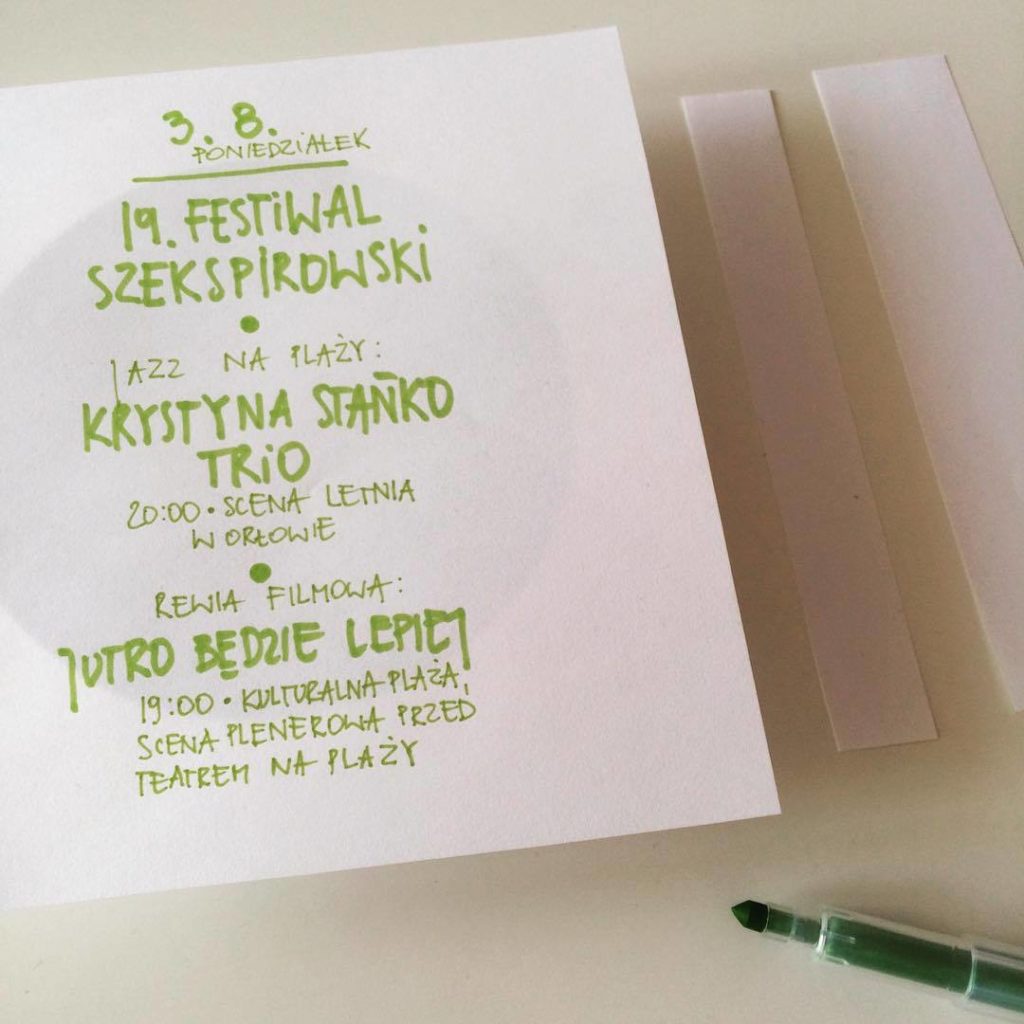 3. 8.
PONIEDZIAŁEK
19. FESTIWAL
SZEKSPIROWSKI
JAZZ NA PLAŻY:
KRYSTYNA STAŃKO
TRIO
20:00 • SCENA LETNIA
W ORŁOWIE
REWIA FILMOWA:
JUTRO BĘDZIE LEPIEJ
19:00 • KULTURALNA PLAŻA,
SCENA PLENEROWA PRZED
TEATREM NA PLAŻY